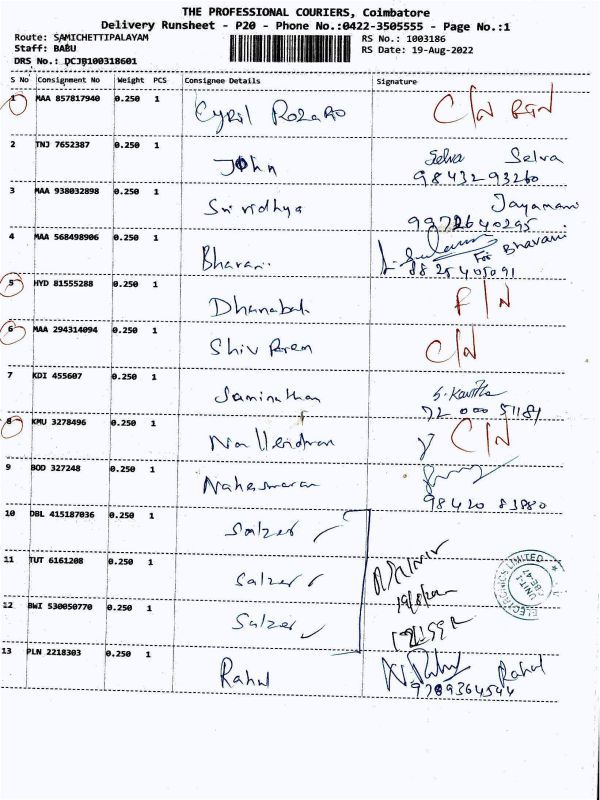 THE PROFESSIONAL COURIERS, Coimbatore
Delivery Runsheet - P20 - Phone No.:0422-3505555 - Page No.:1
Route: SAMICHETTIPALAYAM RS No.: 1003186
Staff: BABU RS Date: 19-Aug-2022
DRS No.: DCJB100318601
S No Consignment No Weight PCS Consignee Details Signature
1 MAA 857817940 0.250 1 Cyril Rozario C/N
2 TNJ 7652387 0.250 1 John Selva Selva
98432 93260
3 MAA 938032898 0.250 1 Srividhya Jayamani
9972640295
4 MAA 568498906 0.250 1 Bharani For Bhavani
8825405091
5 HYD 81555288 0.250 1 Dhanabal
6 MAA 294314094 0.250 1 Shiv Ram C/N
7 KDI 455607 0.250 1 Saminathan S. Kavitha
72 000 51181
8 KMU 3278496 0.250 1 C/N
9 BOD 327248 0.250 1 Maheswaran
98420 83880
10 DBL 415187036 0.250 1 Salzer
11 TUT 6161208 0.250 1 Salzer
19/8/22
ELECTRONICS LIMITED
UNIT-1
12 BWI 530050770 0.250 1 Salzer
13 PLN 2218303 0.250 1 Rahul Rahul
9789364544